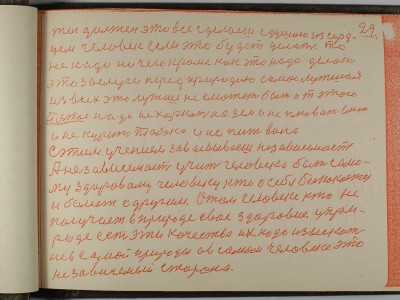 29.
ты должен это все сделать душою и серд-
цем человек если это будет делать то
не надо ничего кроме как это надо делать
это заслуги перед природою самое лучшее
из всех это лучше не сможет быть от этого
Тоже надо не харкать на землю не плевать
и не курить табака и не пить вина
с этим учением завоевываем независимость
А независимость учит человека быть само-
му здоровому человеку кто о себе беспокоит
и болеет о другом. Этот человек кто не
получает в природе свое здоровие у при-
роде есть эти качества их надо извлекать
не в самой природы а в самом человеке это
независимый сторона.